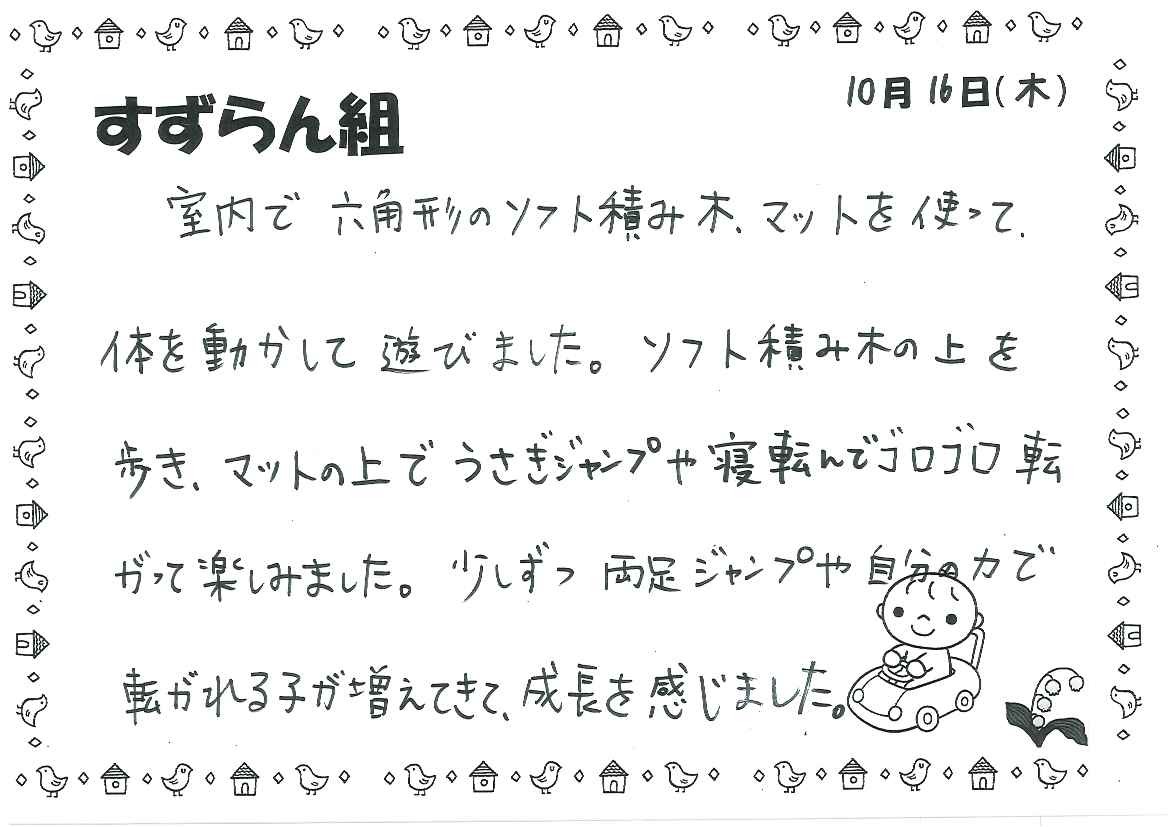 10月16日(木)
すずらん組
室内で六角形のソフト積み木、マットを使って、
体を動かして遊びました。ソフト積み木の上を
歩き、マットの上でうさぎジャンプや寝転んでゴロゴロ転
がって楽しみました。少しずつ両足ジャンプや自分の力で
転がれる子が増えてきて、成長を感じました。